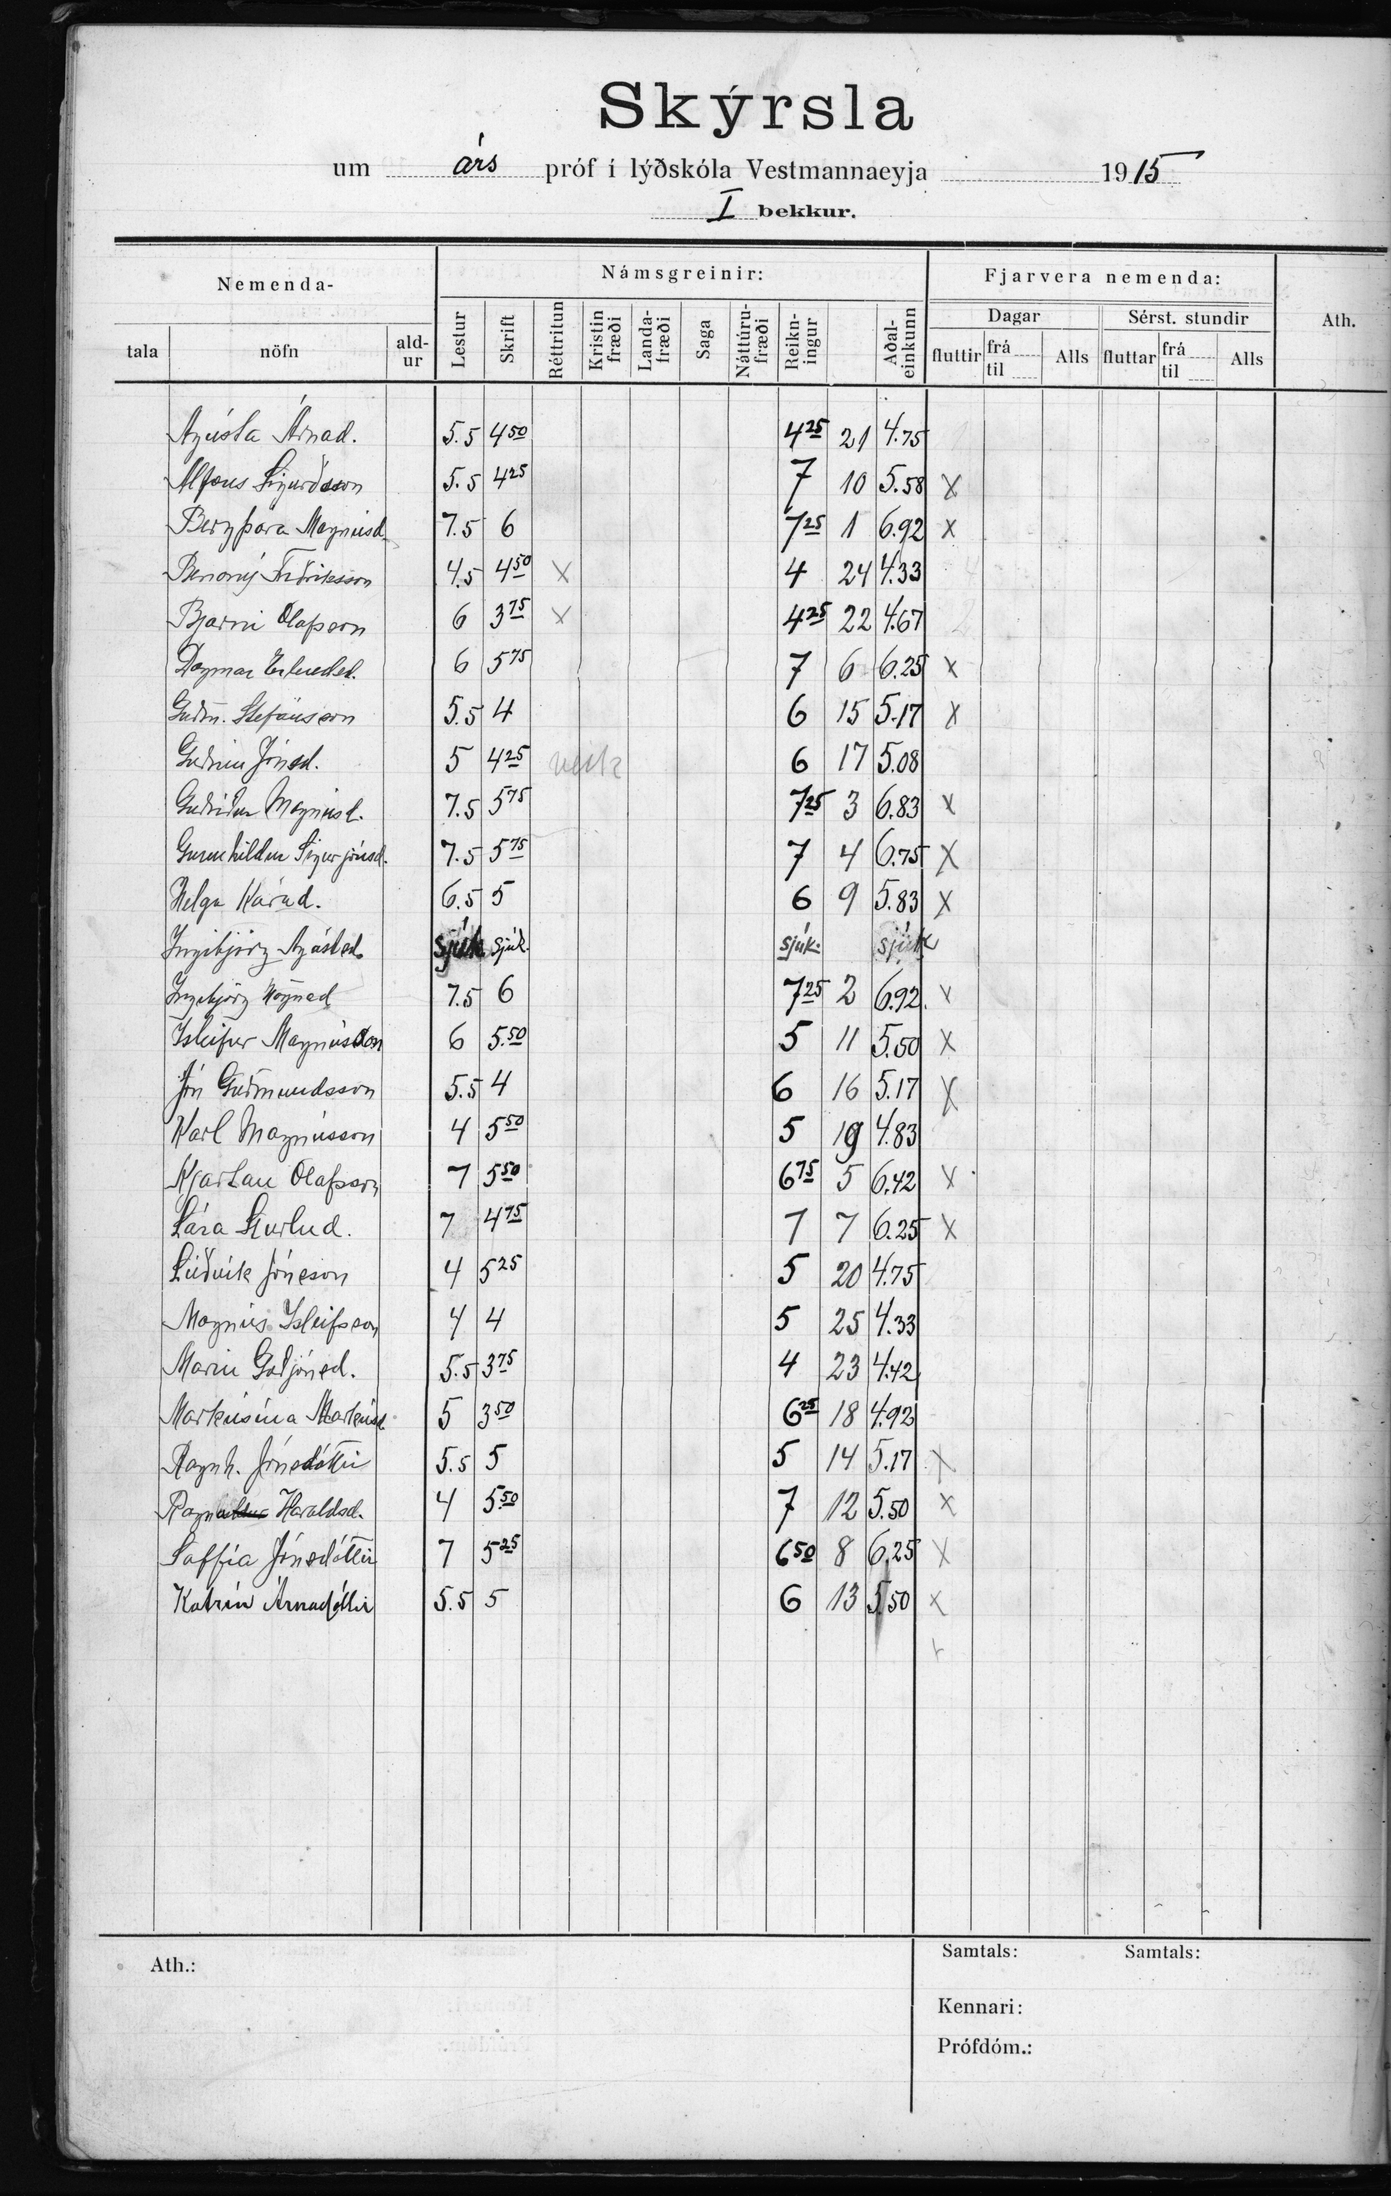 Skýrsla
um árs próf í lýðskóla Vestmannaeyja 1915
I bekkur.
Nemenda- Námsgreinir: Fjarvera nemenda: Ath.
tala nöfn ald-ur Lestur Skrift Réttritun Kristin fræði Landa-fræði Saga Náttúru-fræði Reikn-ingur Aðal-einkunn Dagar Sérst. stundir
fluttir frá til Alls fluttar frá til Alls
Ágústa Árnad. 5.5 4 50 4 25 21 4.75
Alfons Sigurðsson 5.5 4 25 7 10 5.58 x
Bergþora Magnúsd. 7.5 6 7 25 1 6.92 x
Benoný Friðriksson 4.5 4 50 x 4 24 4.33
Bjarni Olafsson 6 3 75 x 4 25 22 4.67
Dagmar Erlendsd. 6 5 75 7 6 6.25 x
Guðm. Stefánsson 5.5 4 6 15 5.17 x
Guðrún Jónsd. 5 4 25 veik 6 17 5.08
Guðríður Magnúsd. 7.5 5 75 7 25 3 6.83 x
Gunnhildur Sigurjónsd. 7.5 5 75 7 4 6.75 x
Helga Kárad. 6.5 5 6 9 5.83 x
Ingibjörg Ágústsd. sjúk sjúk. sjúk. sjúk
Ingibjörg Högnad 7.5 6 7 25 2 6.92. x
Ísleifur Magnússon 6 5.50 5 11 5.50 x
Jón Guðmundsson 5.5 4 6 16 5.17 x
Karl Magnússon 4 5 50 5 19 4.83
Kjartan Olafsson 7 5 50 6 75 5 6.42 x
Lára Sturlud. 7 4 75 7 7 6.25 x
Lúðvík Jónsson 4 5 25 5 20 4.75
Magnús Ísleifsson 4 4 5 25 4.33
Maria Guðjónsd. 5.5 3 75 4 23 4.42
Markúsína Markúsd. 5 3 50 6 25 18 4.92
Ragnh. Jónsdóttir 5.5 5 5 14 5.17 x
Haraldsd. 4 5.50 7 12 5.50 x
Soffía Jónsdóttir 7 5 25 6 50 8 6.25 x
Katrín Árnadóttir 5.5 5 6 13 5.50 x
Ath.: Samtals: Samtals:
Kennari:
Prófdóm.: